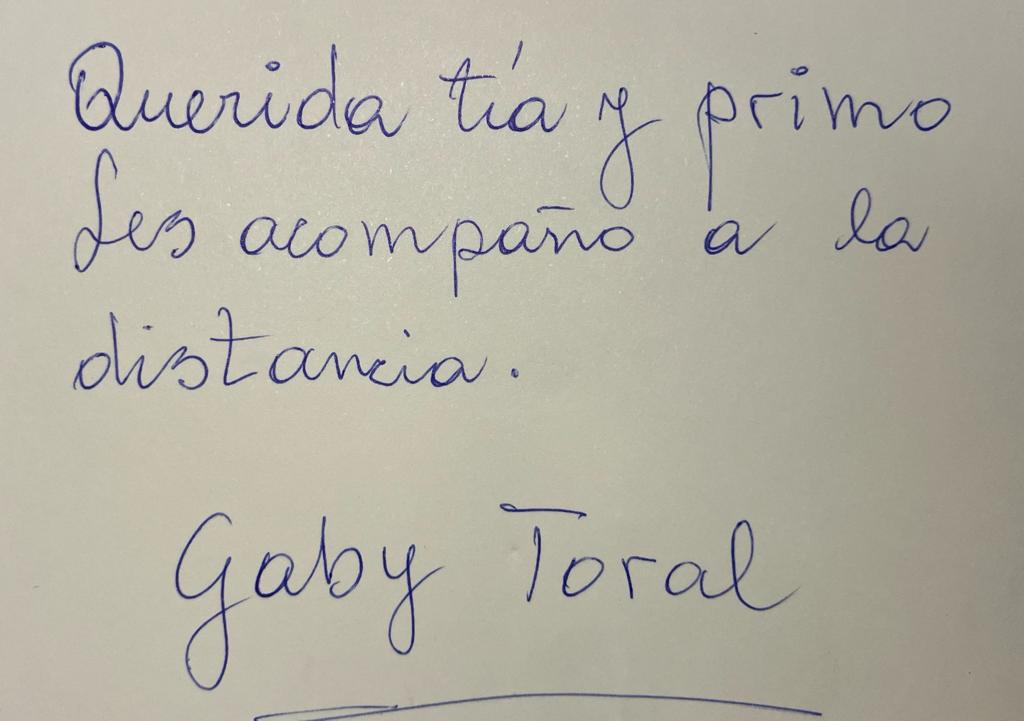 Querida tía y primo
Les acompaño a la
distancia.
Gaby Toral